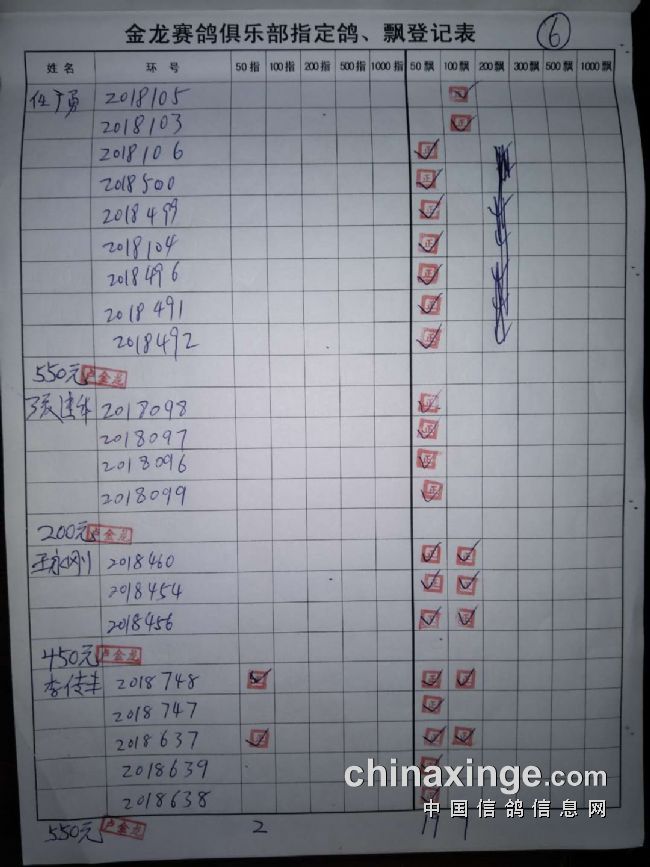 金龙赛鸽俱乐部指定鸽、飘登记表 6
姓名 环号 50指 100指 200指 500指 1000指 50飘 100飘 200飘 300飘 500飘 1000飘
任广勇 2018105 正
2018103 正
2018106 正
2018500 正
2018499 正
2018104 正
2018496 正
2018491 正
2018492 正
550元 卢金龙
张建华 2018098 正
2018097 正
2018096 正
2018099 正
200元 卢金龙
王永刚 2018460 正 正
2018454 正 正
2018456 正 正
450元 卢金龙
李传丰 2018748 正 正 正
2018747 正
2018637 正 正 正
2018639 正
2018638 正
550元 卢金龙 2
chinaxinge.com
中国信鸽信息网